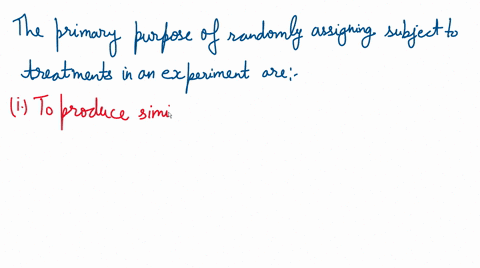 The primary purpose of randomly assigning subject to
treatments in an experiment are:-
(i.) To produce simi